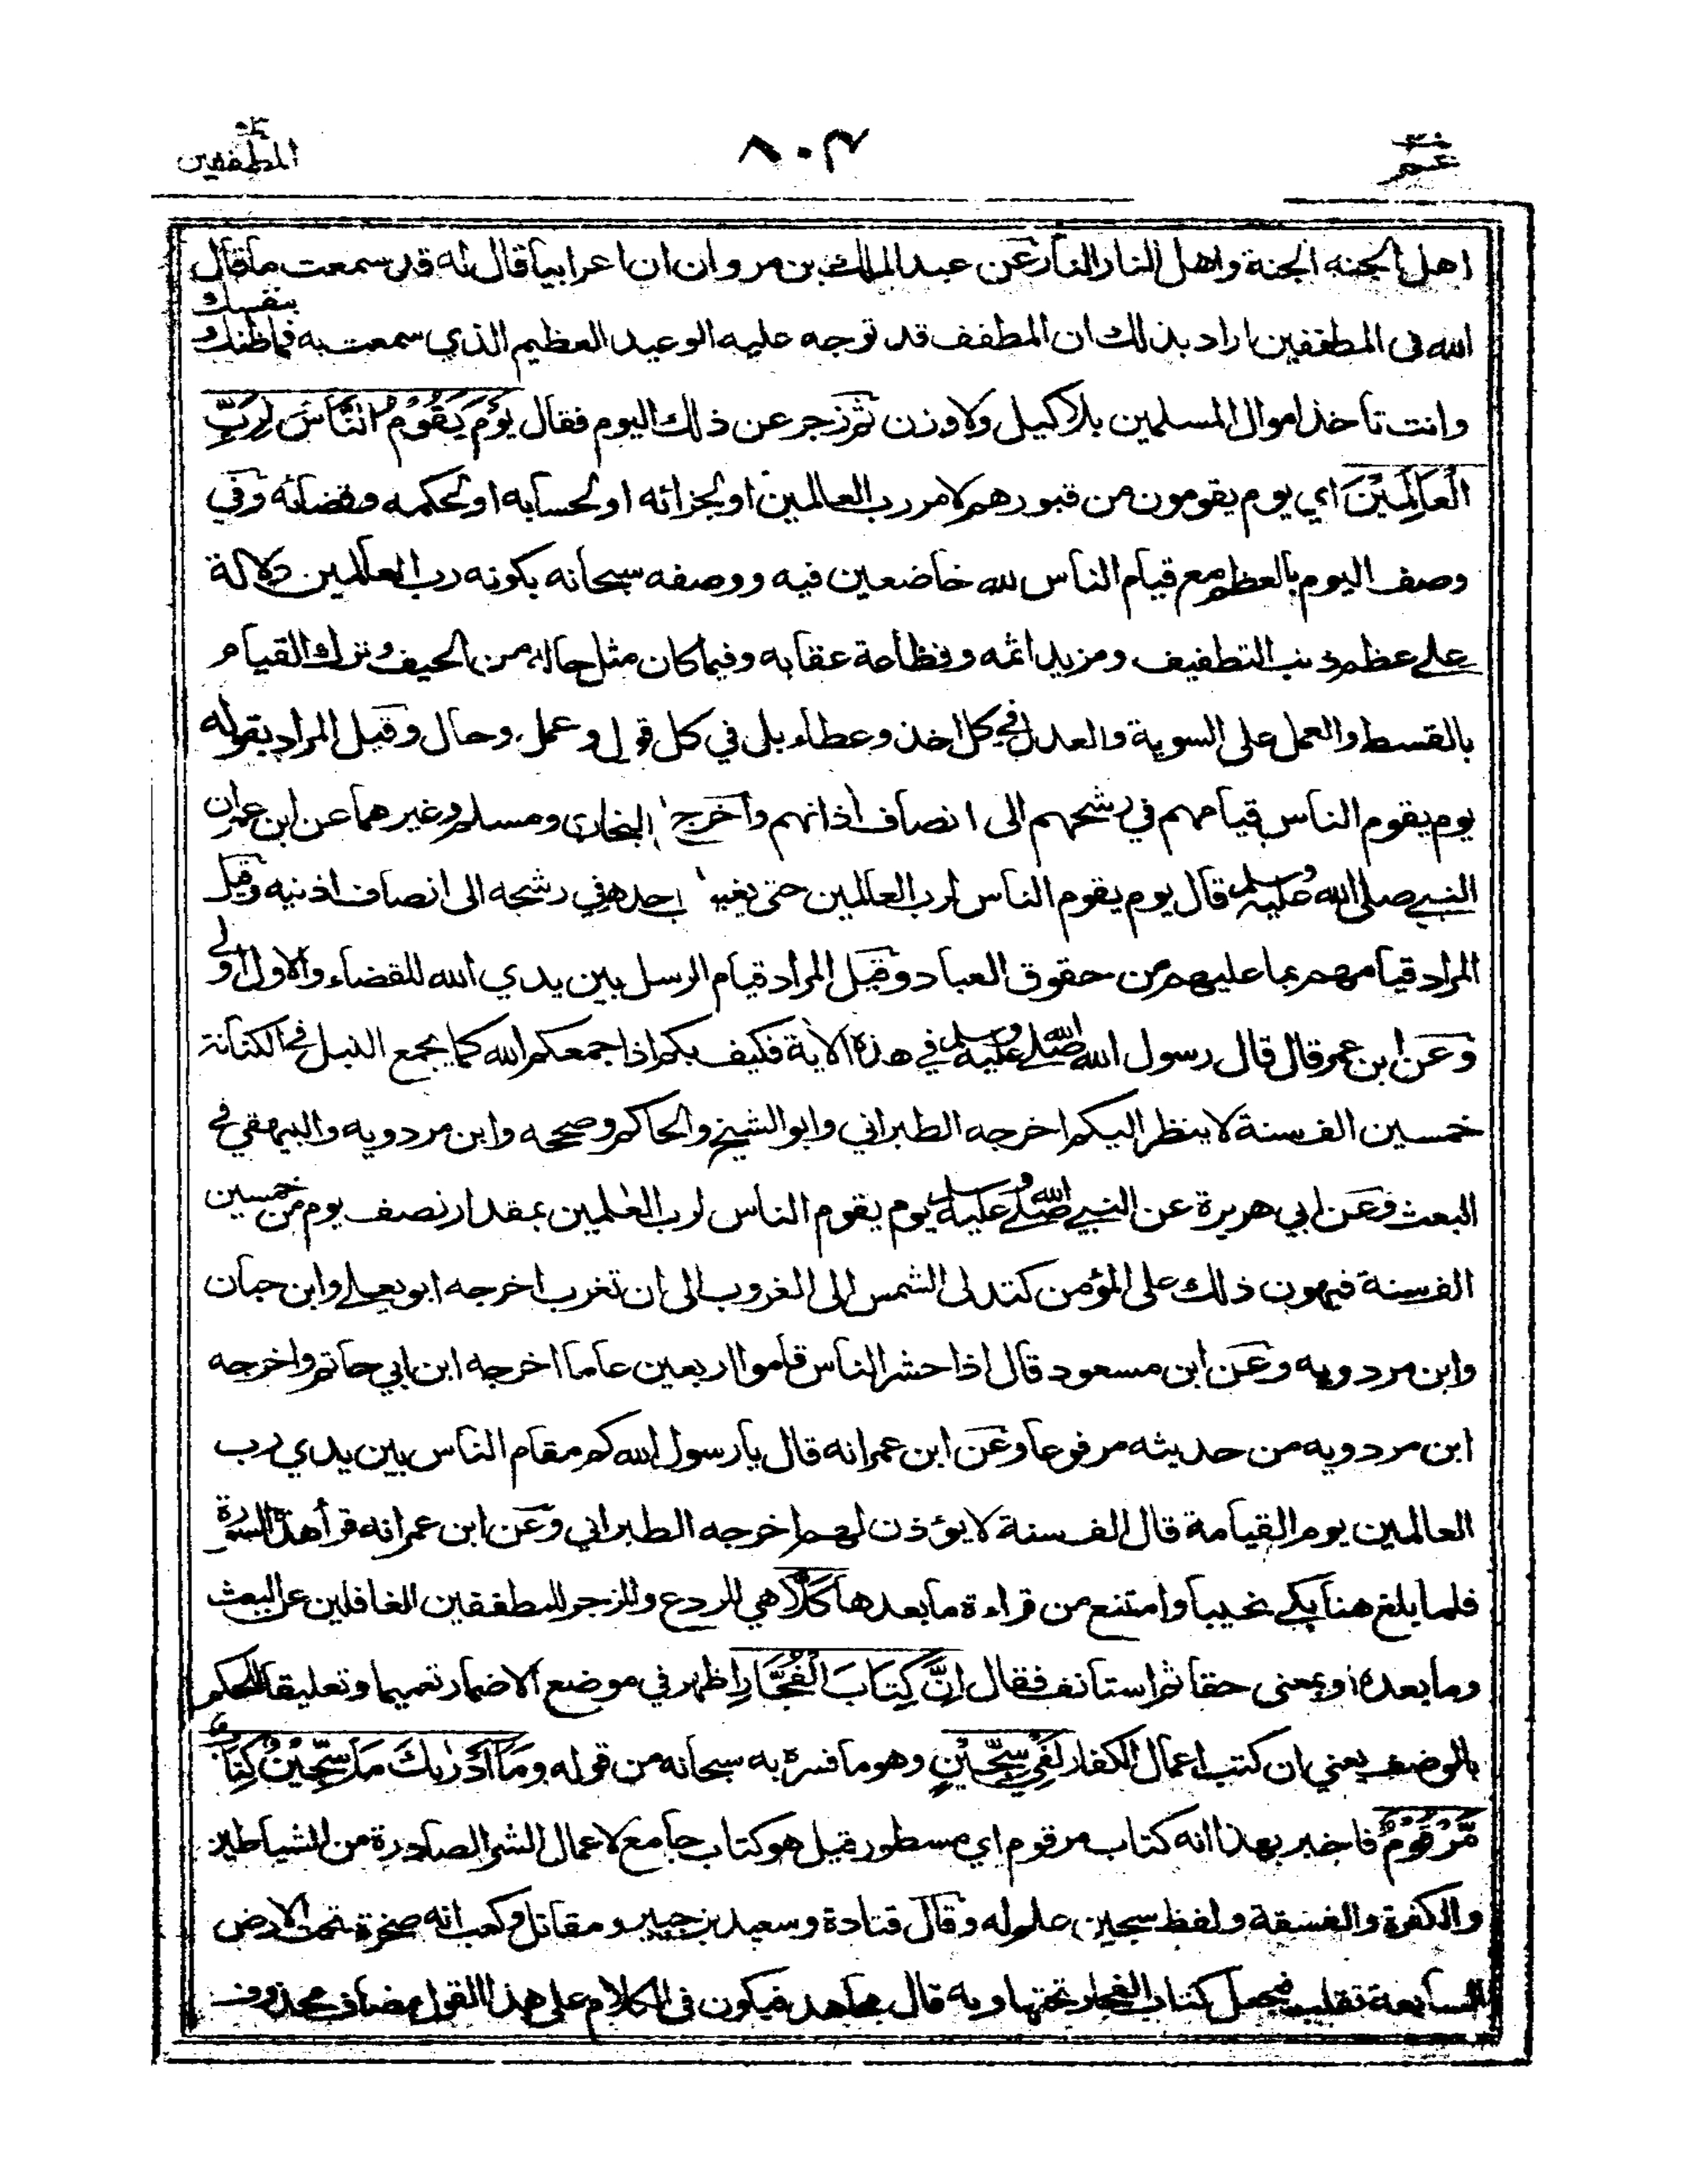 عم ٣٠
٨٠٣
المطففين ٨٣
اهل الجنة الجنة واهل النار النار وعن عبد الملك بن مروان ان اعرابيا قال له قد سمعت ما قال
الله فى المطففين اراد بذلك ان المطفف قد توجه عليه الوعيد العظيم الذي سمعت به فما ظنك بنفسك
وانت تاخذ اموال المسلمين بلا كيل ولا وزن ثم زجر عن ذلك اليوم فقال يَوْمَ يَقُوْمُ النَّاسُ لِرَبِّ
الْعَالَمِيْنَ اي يوم يقومون من قبورهم لامر رب العالمين او لجزائه او لحسابه او لحكمه وقضائه وفي
وصف اليوم بالعظم مع قيام الناس لله خاضعين فيه ووصفه سبحانه بكونه رب العالمين دلالة
على عظم ذنب التطفيف ومزيد اثمه وفظاعة عقابه وفيما كان مثل حاله من الحيف وترك القيام
بالقسط والعمل على السوية والعدل في كل اخذ وعطاء بلى في كل قول وعمل وحال وقيل المراد بقوله
يوم يقوم الناس قيامهم في رشحهم الى انصاف اذانهم واخرج البخاري ومسلم وغيرهما عن ابن عمر ان
النبي صلى الله عليه وسلم قال يوم يقوم الناس لرب العالمين حتى يغيب احدهم في رشحه الى انصاف اذنيه وقيل
المراد قيامهم بما عليهم من حقوق العباد وقيل المراد قيام الرسل بين يدي الله للقضاء والاول اولى
وعن ابن عمر قال قال رسول الله صلى الله عليه وسلم في هذه الاية فكيف بكم اذا جمعكم الله كما يجمع النبل في الكنانة
خمسين الف سنة لا ينظر اليكم اخرجه الطبراني وابو الشيخ والحاكم وصححه وابن مردويه والبيهقي في
البعث وعن ابي هريرة عن النبي صلى الله عليه وسلم يوم يقوم الناس لرب العلمين بمقدار نصف يوم من خمسين
الف سنة فيهون ذلك على المؤمن كتدلى الشمس الى الغروب الى ان تغرب اخرجه ابو يعلى وابن حبان
وابن مردويه وعن ابن مسعود قال اذا حشر الناس قاموا اربعين عاما اخرجه ابن ابي حاتم واخرجه
ابن مردويه من حديثه مرفوعا وعن ابن عمر انه قال يا رسول الله كم مقام الناس بين يدي رب
العالمين يوم القيامة قال الف سنة لا يؤذن لهم اخرجه الطبراني وعن ابن عمر انه قرأ هذه السورة
فلما بلغ هنا بكى نحيبا وامتنع من قراءة ما بعدها كَلَّا هي للردع والزجر للمطففين الغافلين عن البعث
وما بعده او بمعنى حقا ثم استانف فقال اِنَّ كِتَابَ الْفُجَّارِ اظهر في موضع الاضمار تعميما وتعليقا للحكم
بالوصف يعني ان كتب اعمال الكفار لَفِيْ سِجِّيْنٍ وهو ما فسره به سبحانه من قوله وَمَا اَدْرٰىكَ مَا سِجِّيْنٌ كِتَابٌ
مَّرْقُوْمٌ فاخبر بهذا انه كتاب مرقوم اي مسطور قيل هو كتاب جامع لاعمال الشر الصادرة من الشياطين
والكفرة والفسقة ولفظ سجين علم له وقال قتادة وسعيد بن جبير ومقاتل وكعب انه صخرة تحت الارض
السابعة تقلب فيجعل كتاب الفجار تحتها وبه قال مجاهد فيكون فى الكلام على هذا القول مضاف محذوف